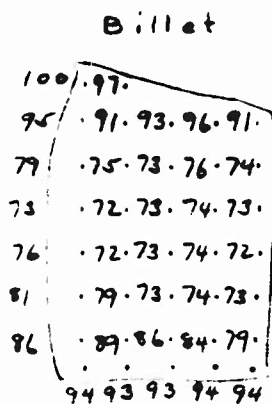 Billet
100 .97.
95 .91. 93. 96. 91.
79 .75. 73. 76. 74.
73 .72. 73. 74. 73.
76 .72. 73. 74. 72.
81 .79. 73. 74. 73.
86 .89. 86. 84. 79.
94 93 93 94 94